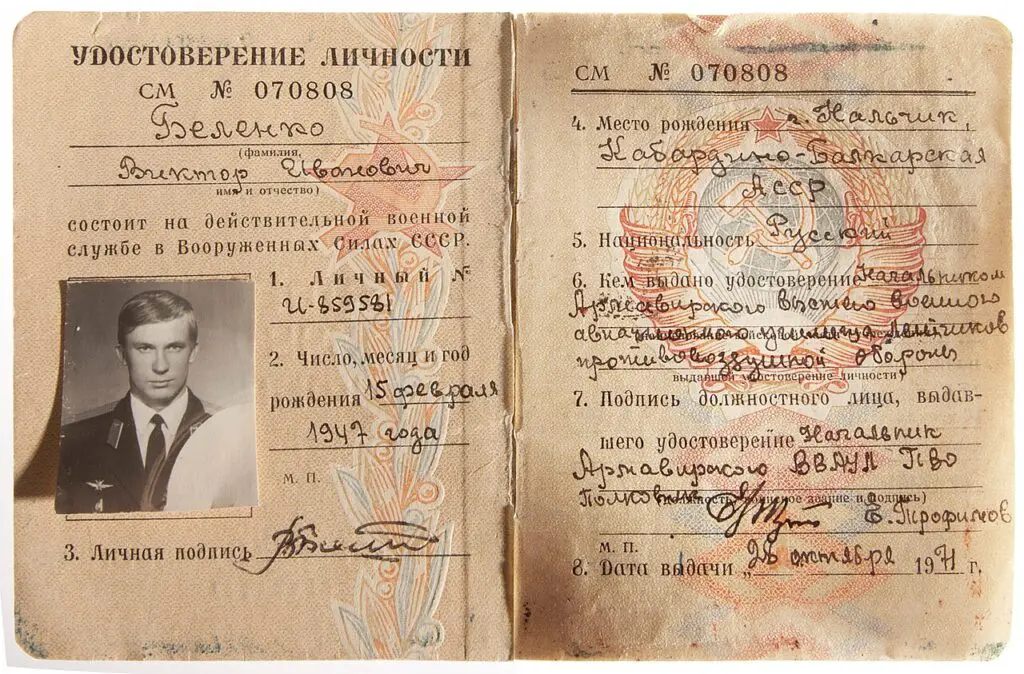 УДОСТОВЕРЕНИЕ ЛИЧНОСТИ
СМ № 070808
Беленко
(фамилия,
Виктор Иванович
имя и отчество)
состоит на действительной военной
службе в Вооруженных Силах СССР.
1. Личный №
И-859581
2. Число, месяц и год
рождения 15 февраля
1947 года
М. П.
3. Личная подпись
СМ № 070808
4. Место рождения г. Нальчик,
Кабардино-Балкарская
АССР
5. Национальность Русский
6. Кем выдано удостоверение Начальником
Армавирского высшего военного
авиационного училища лётчиков
противовоздушной обороны
выдавшей удостоверение личности)
7. Подпись должностного лица, выдав-
шего удостоверение Начальник
Армавирского ВВАУЛ ПВО
Полковник
(должность, воинское звание и подпись)
Е. Трофимов
М. П.
8. Дата выдачи „28 октября 1971 г.